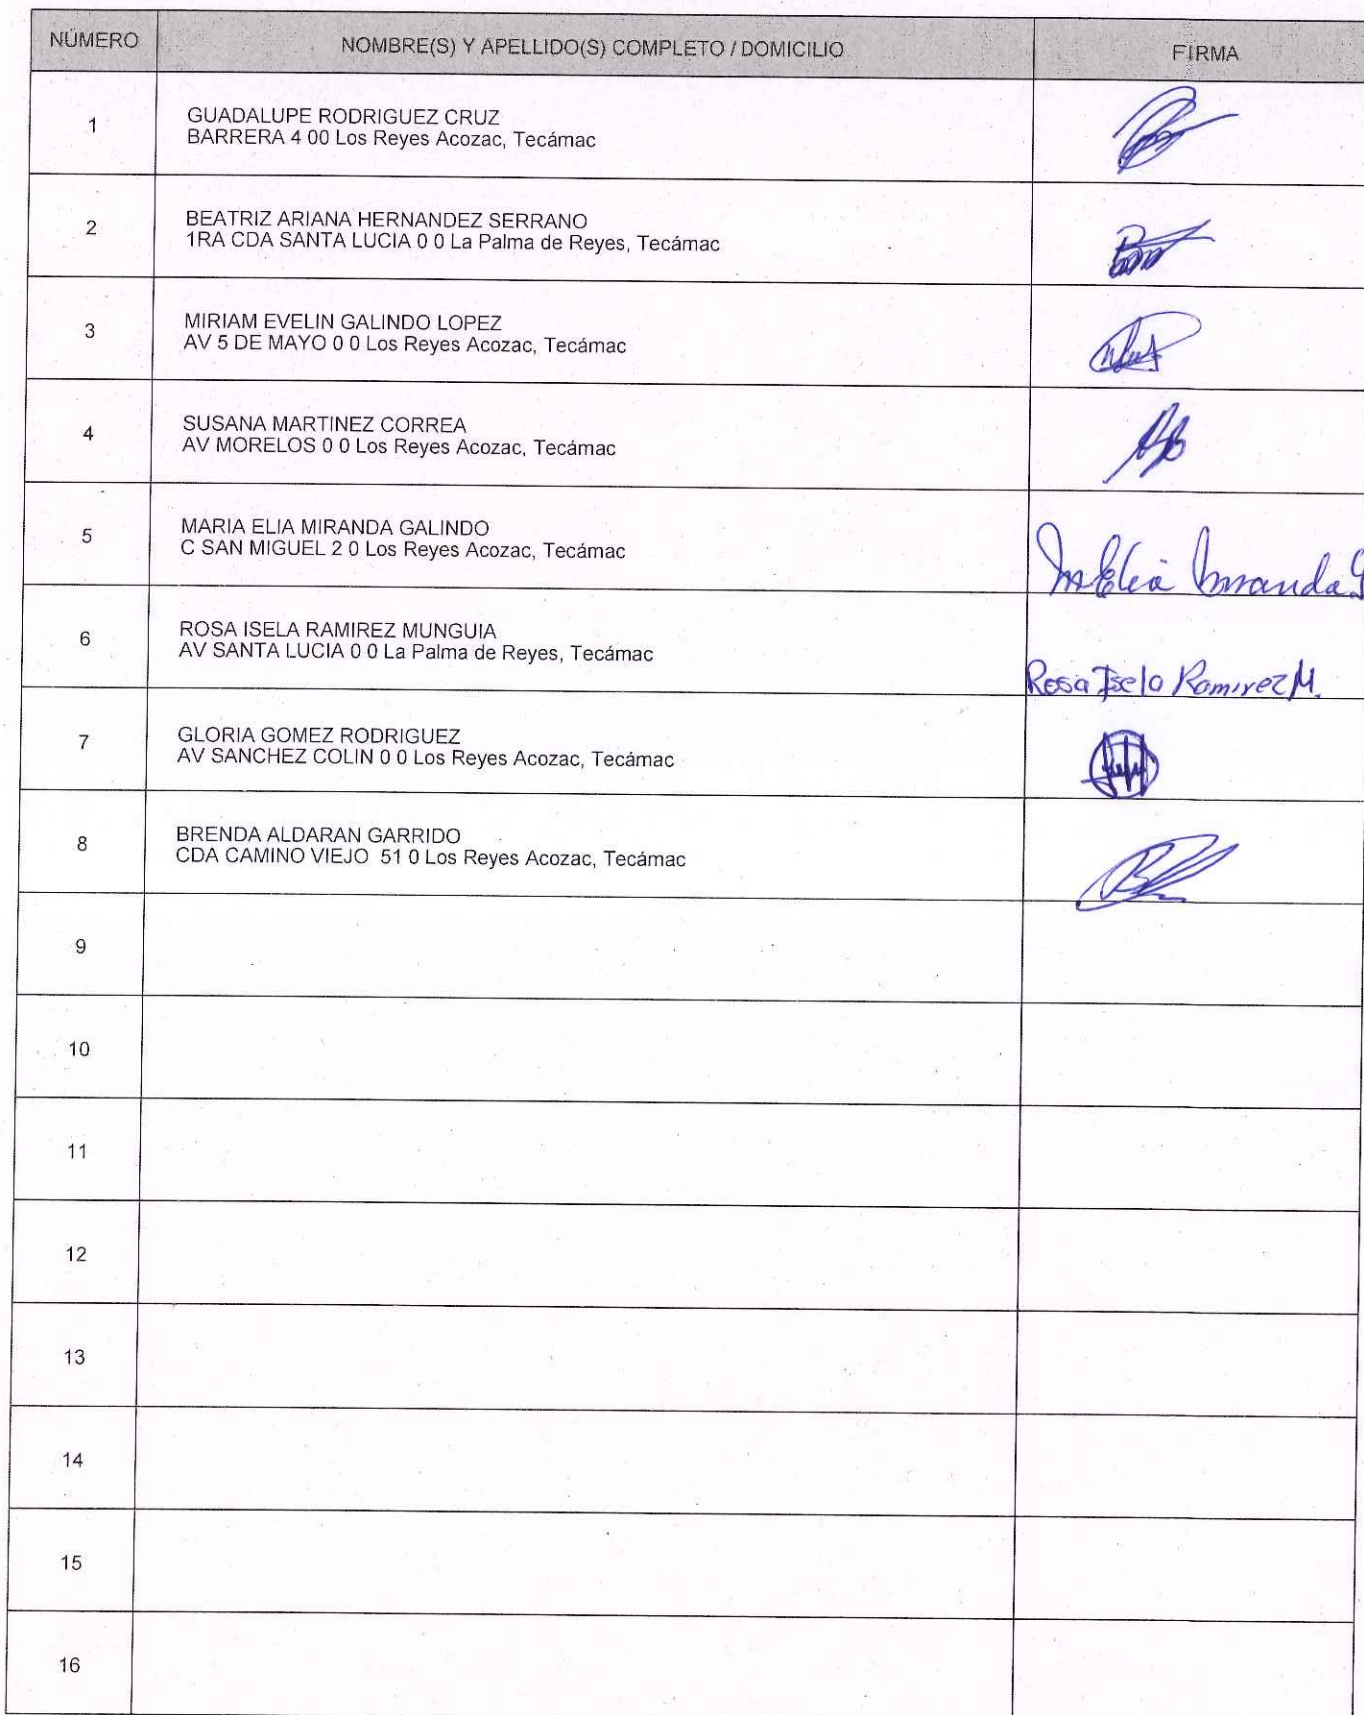 NÚMERO NOMBRE(S) Y APELLIDO(S) COMPLETO / DOMICILIO FIRMA
1 GUADALUPE RODRIGUEZ CRUZ
BARRERA 4 00 Los Reyes Acozac, Tecámac
2 BEATRIZ ARIANA HERNANDEZ SERRANO
1RA CDA SANTA LUCIA 0 0 La Palma de Reyes, Tecámac
3 MIRIAM EVELIN GALINDO LOPEZ
AV 5 DE MAYO 0 0 Los Reyes Acozac, Tecámac
4 SUSANA MARTINEZ CORREA
AV MORELOS 0 0 Los Reyes Acozac, Tecámac
5 MARIA ELIA MIRANDA GALINDO
C SAN MIGUEL 2 0 Los Reyes Acozac, Tecámac
Ma Elia Miranda G
6 ROSA ISELA RAMIREZ MUNGUIA
AV SANTA LUCIA 0 0 La Palma de Reyes, Tecámac
Rosa Isela Ramirez M.
7 GLORIA GOMEZ RODRIGUEZ
AV SANCHEZ COLIN 0 0 Los Reyes Acozac, Tecámac
8 BRENDA ALDARAN GARRIDO
CDA CAMINO VIEJO 51 0 Los Reyes Acozac, Tecámac
9
10
11
12
13
14
15
16